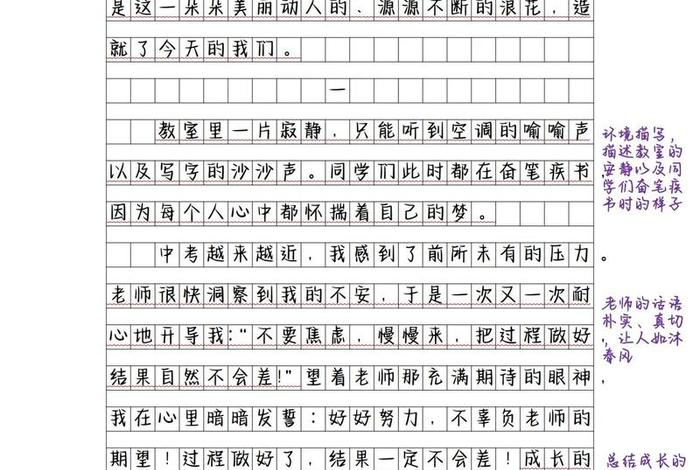 是这一朵朵美丽动人的、源源不断的浪花，造
就了今天的我们。
一
教室里一片寂静，只能听到空调的喻喻声
以及写字的沙沙声。同学们此时都在奋笔疾书，
因为每个人心中都怀揣着自己的梦。
中考越来越近，我感到了前所未有的压力。
老师很快洞察到我的不安，于是一次又一次耐
心地开导我："不要焦虑，慢慢来，把过程做好，
结果自然不会差！"望着老师那充满期待的眼神，
我在心里暗暗发誓：好好努力，不辜负老师的
期望！过程做好了，结果一定不会差！成长的
环境描写，
描述教室的
安静以及同
学们奋笔疾
书时的样子
老师的话语
朴实、真切
，让人如沐
春风
总结成长的